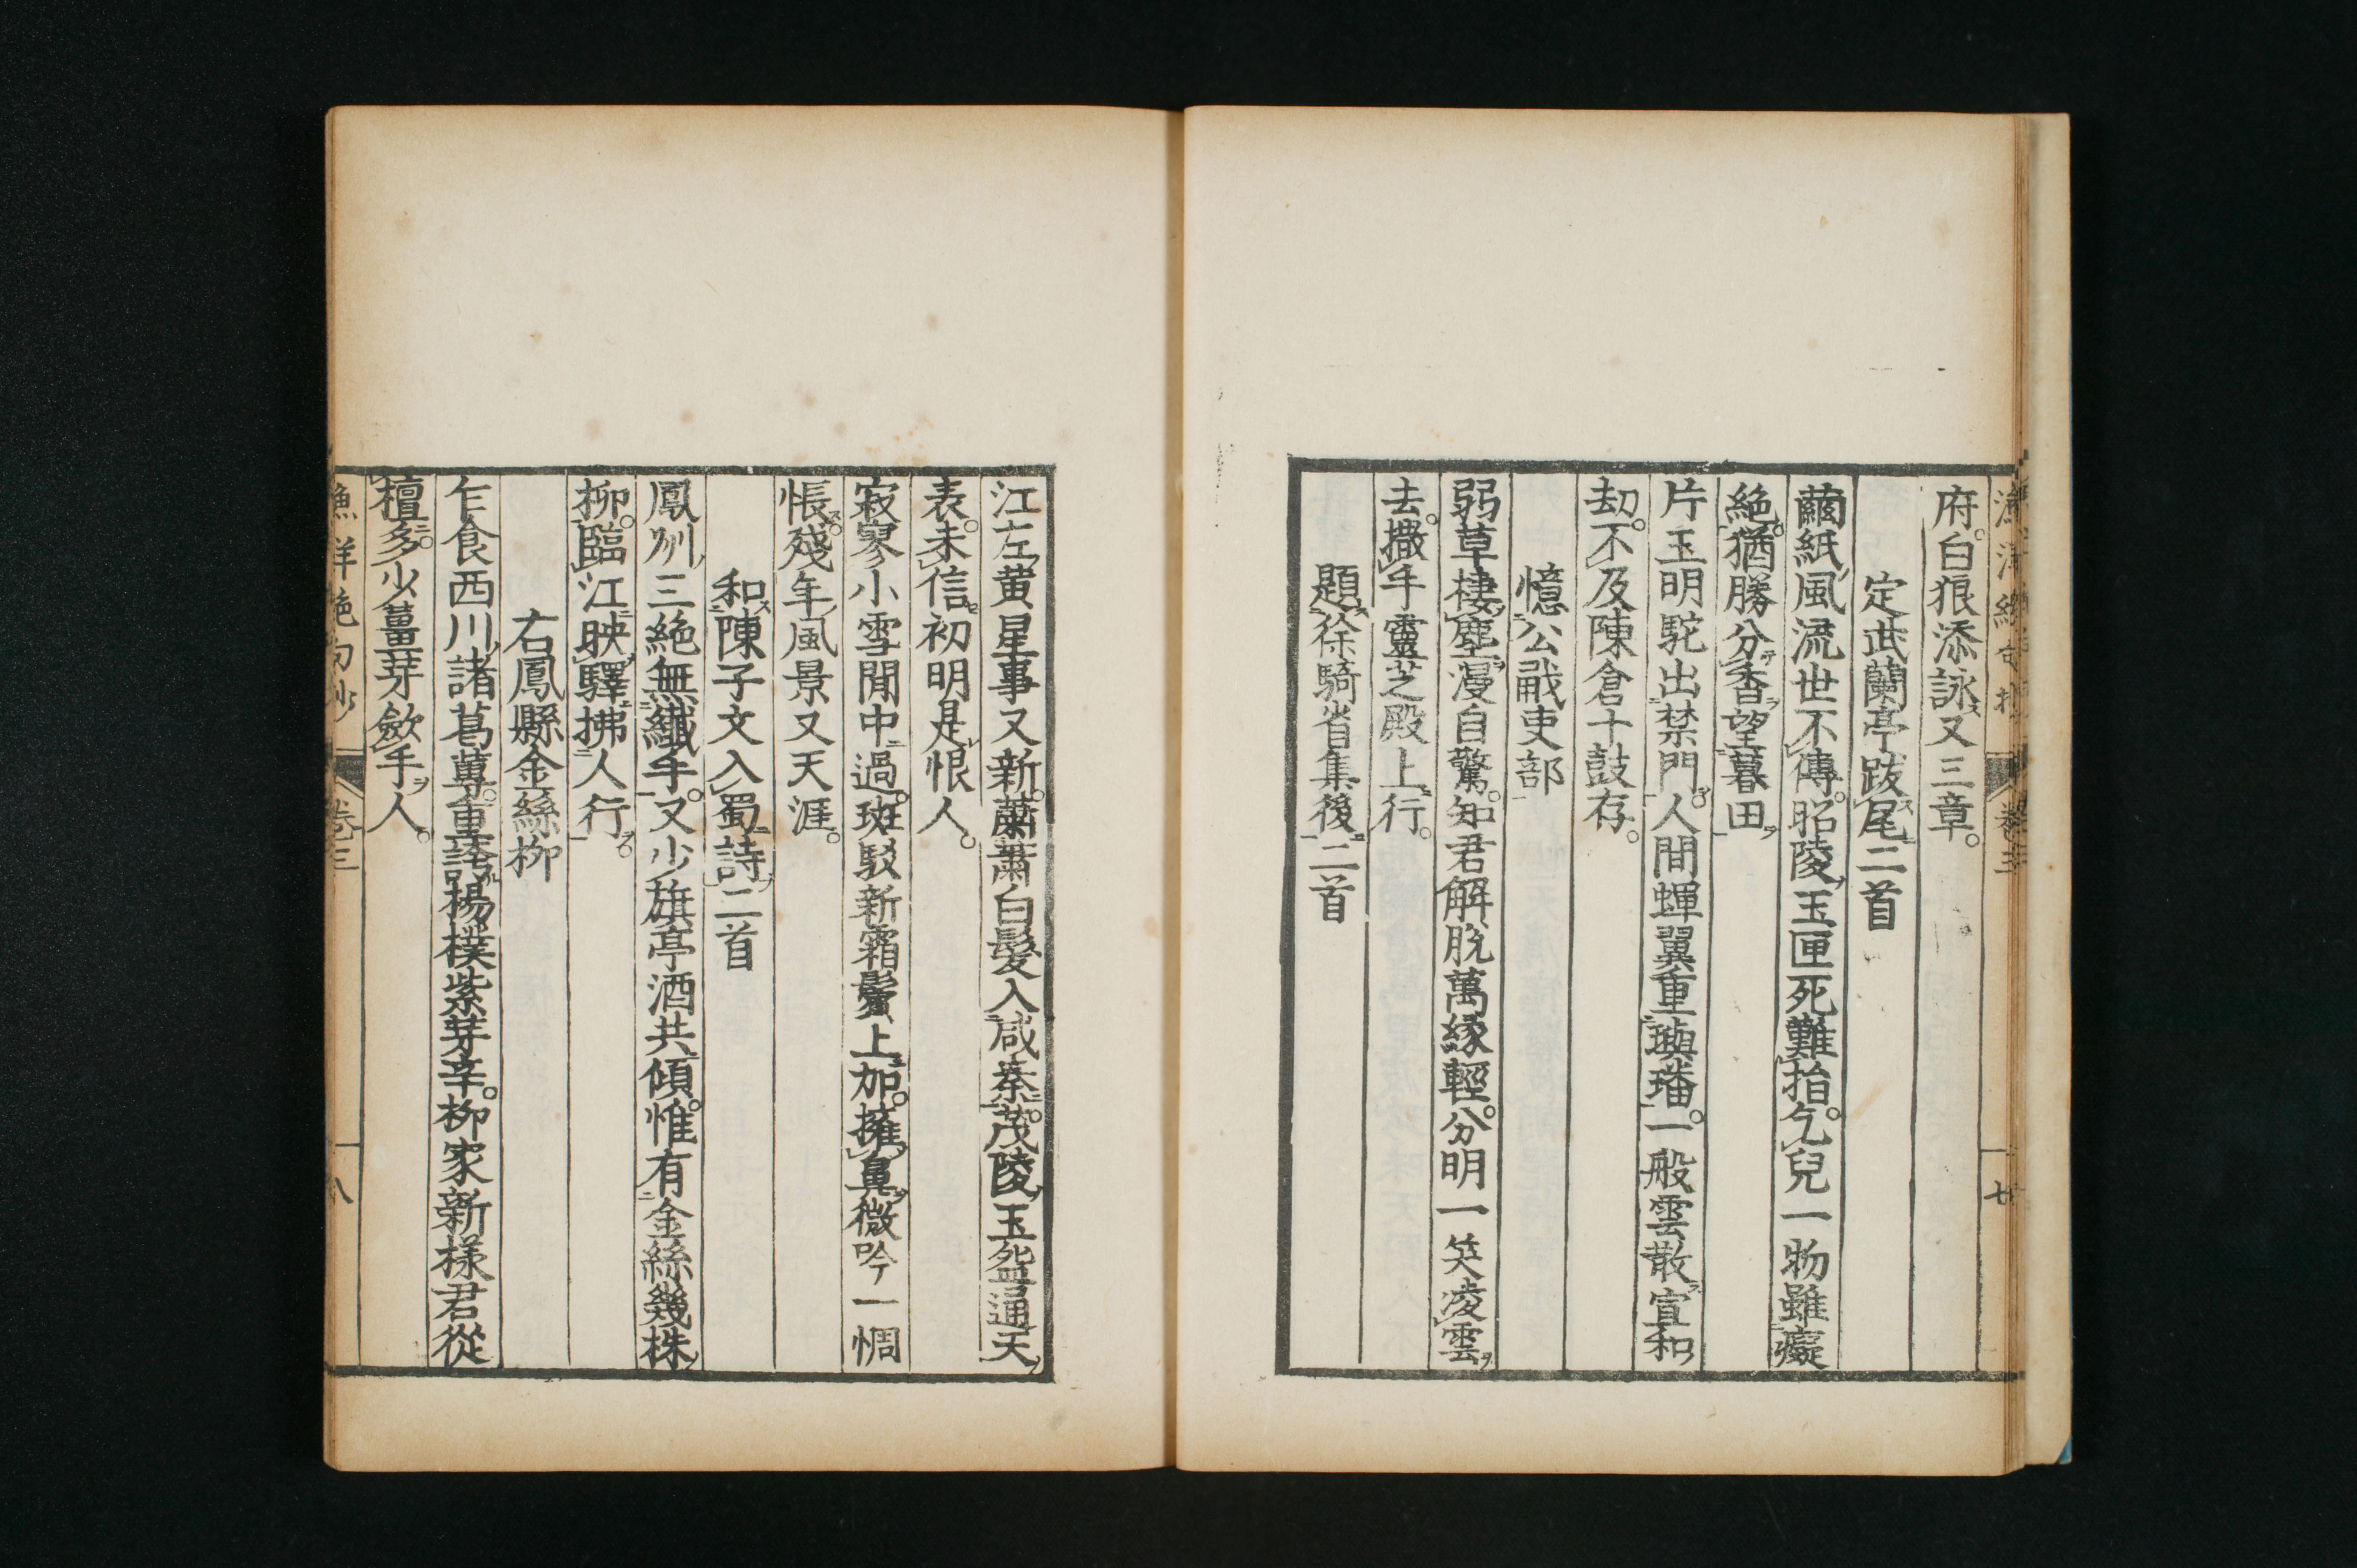 府。白狼添詠又三章。
定武蘭亭跋尾二首
繭紙風流世不傳。昭陵玉匣死難抬。乞兒一物雖癡
絶。猶勝分香望暮田
片玉明駝出禁門。人間蟬翼重璵璠。一般雲散宣和
刧。不及陳倉十鼓存。
憶公㦸吏部
弱草棲塵漫自驚。知君解脫萬緣輕。分明一笑凌雲
去。撒手靈芝殿上行。
題徐騎省集後二首
江左黃星事又新。蕭蕭白髮入咸秦。茂陵玉盌通天
表。未信初明是恨人。
寂寥小雪閒中過。斑駁新霜鬢上加。擁鼻微吟一惆
悵。殘年風景又天涯。
和陳子文入蜀詩二首
鳳州三絶無纖手。又少旗亭酒共傾。惟有金絲幾株
柳。臨江映驛拂人行。
右鳳縣金絲柳
乍食西川諸葛蕈。重誇楊樸紫芽辛。柳家新樣君從
檀。多少薑芽斂手人。
漁洋絶句抄 卷三 八